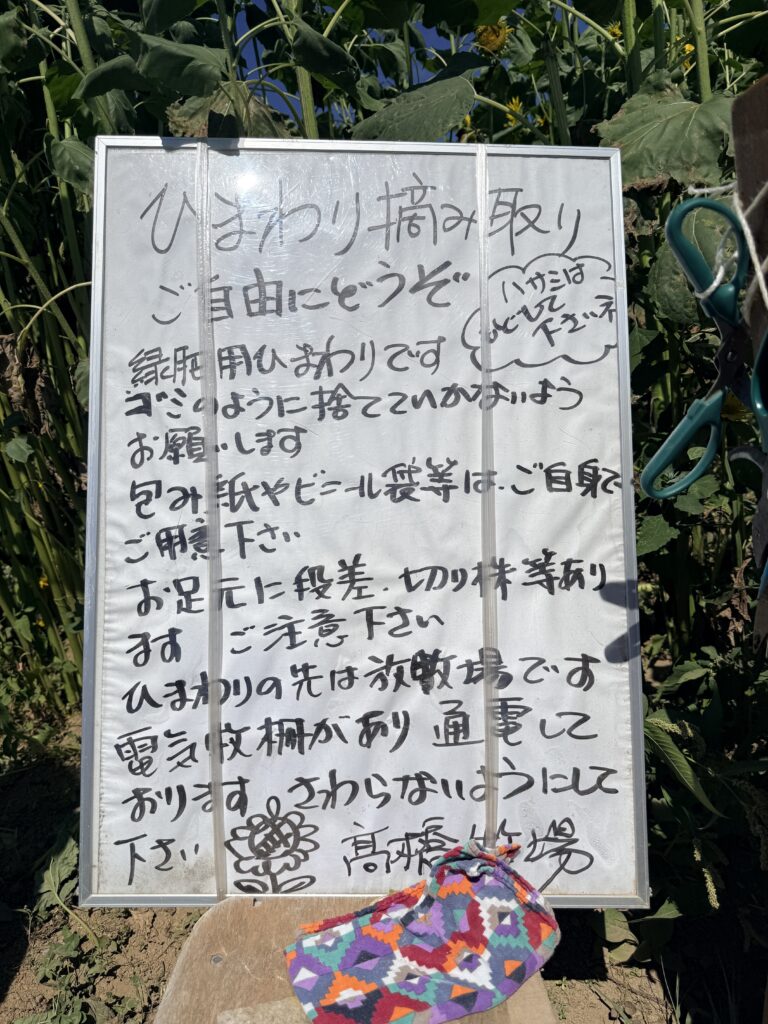 ひまわり摘み取り
ご自由にどうぞ
ハサミは
もどして
下さいネ
緑肥用ひまわりです
ゴミのように捨てていかないよう
お願いします
包み紙やビニール袋等は、ご自身で
ご用意下さい
お足元に段差、切り株等あり
ます ご注意下さい
ひまわりの先は放牧場です
電気牧柵があり 通電して
おります さわらないようにして
下さい 髙橋牧場